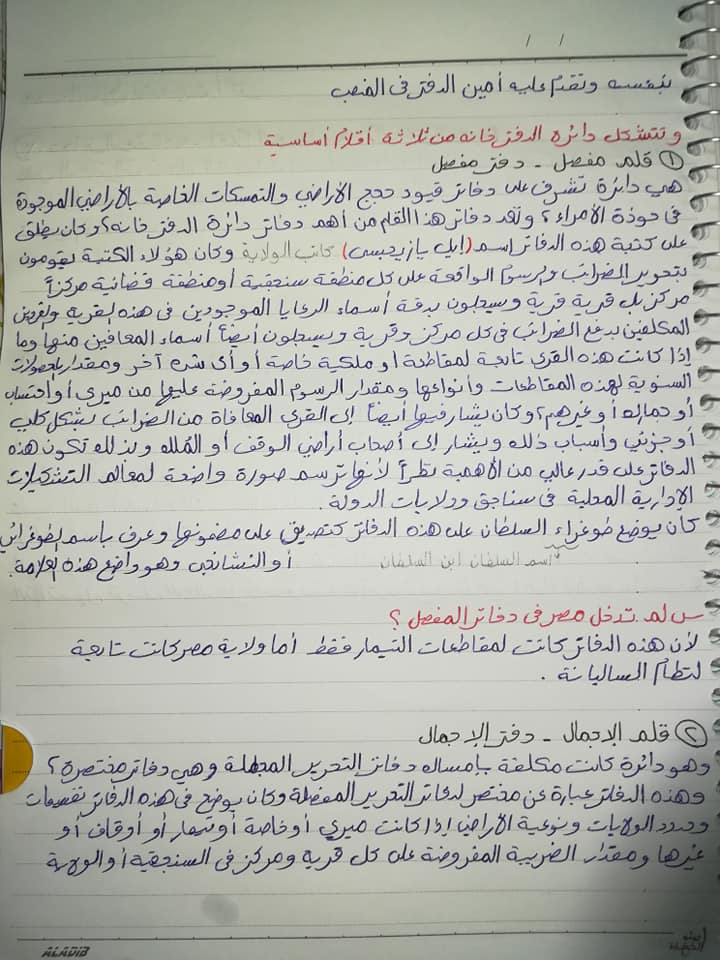 / /
بنفسه وتقدم عليه أمين الدفتر فى المنصب
وتتشكل دائرة الدفترخانه من ثلاثة أقلام أساسية
① قلم مفصل - دفتر مفصل
هي دائرة تشرف على دفاتر قيود حجج الأراضي والتمسكات الخاصة بالأراضي الموجودة
فى حوذة الأمراء، وتعد دفاتر هذا القلم من أهم دفاتر دائرة الدفترخانه، وكان يطلق
على كتبة هذه الدفاتر اسم (إيل يازيجيسى) كاتب الولاية وكان هؤلاء الكتبة يقومون
بتحرير الضرائب والرسوم الواقعة على كل منطقة سنجقية أو منطقة قضائية مركزاً
مركز بل قرية قرية ويسجلون بدقة أسماء الرعايا الموجودين فى هذه القرية والقرويين
المكلفين بدفع الضرائب فى كل مركز وقرية ويسجلون أيضاً أسماء المعافين منها وما
إذا كانت هذه القرى تابعة لمقاطعة أو ملكية خاصة أو أى شىء آخر ومقدار المحصولات
السنوية لهذه المقاطعات وأنواعها ومقدار الرسوم المفروضة عليها من ميري أو احتساب
أو جمارك أو غيرهم، وكان يشار فيها أيضاً إلى القرى المعافاة من الضرائب بشكل كلى
أو جزئي وأسباب ذلك ويشار إلى أصحاب أراضي الوقف أو الملك وبذلك تكون هذه
الدفاتر على قدر عالي من الأهمية نظراً لأنها ترسم صورة واضحة لمعالم التشكيلات
الإدارية المحلية فى سناجق وولايات الدولة .
كان يوضع طوغراء السلطان على هذه الدفاتر كتصديق على مضمونها وعرف باسم الطوغرائي
اسم السلطان ابن السلطان أو النشانجى وهو واضع هذه العلامة.
س لم تدخل مصر فى دفاتر المفصل ؟
لأن هذه الدفاتر كانت لمقاطعات التيمار فقط أما ولاية مصر كانت تابعة
لنظام الساليانة .
② قلم الإجمال - دفتر الإجمال
وهو دائرة كانت مكلفة بإمساك دفاتر التحرير المجملة وهي دفاتر مختصرة،
وهذه الدفاتر عبارة عن مختصر لدفاتر التحرير المفصلة وكان يوضح فى هذه الدفاتر تقسيمات
وحدود الولايات ونوعية الأراضي إذا كانت ميري أو خاصة أو تيمار أو أوقاف أو
غيرها ومقدار الضريبة المفروضة على كل قرية ومركز فى السنجقية أو الولاية
ALADIB